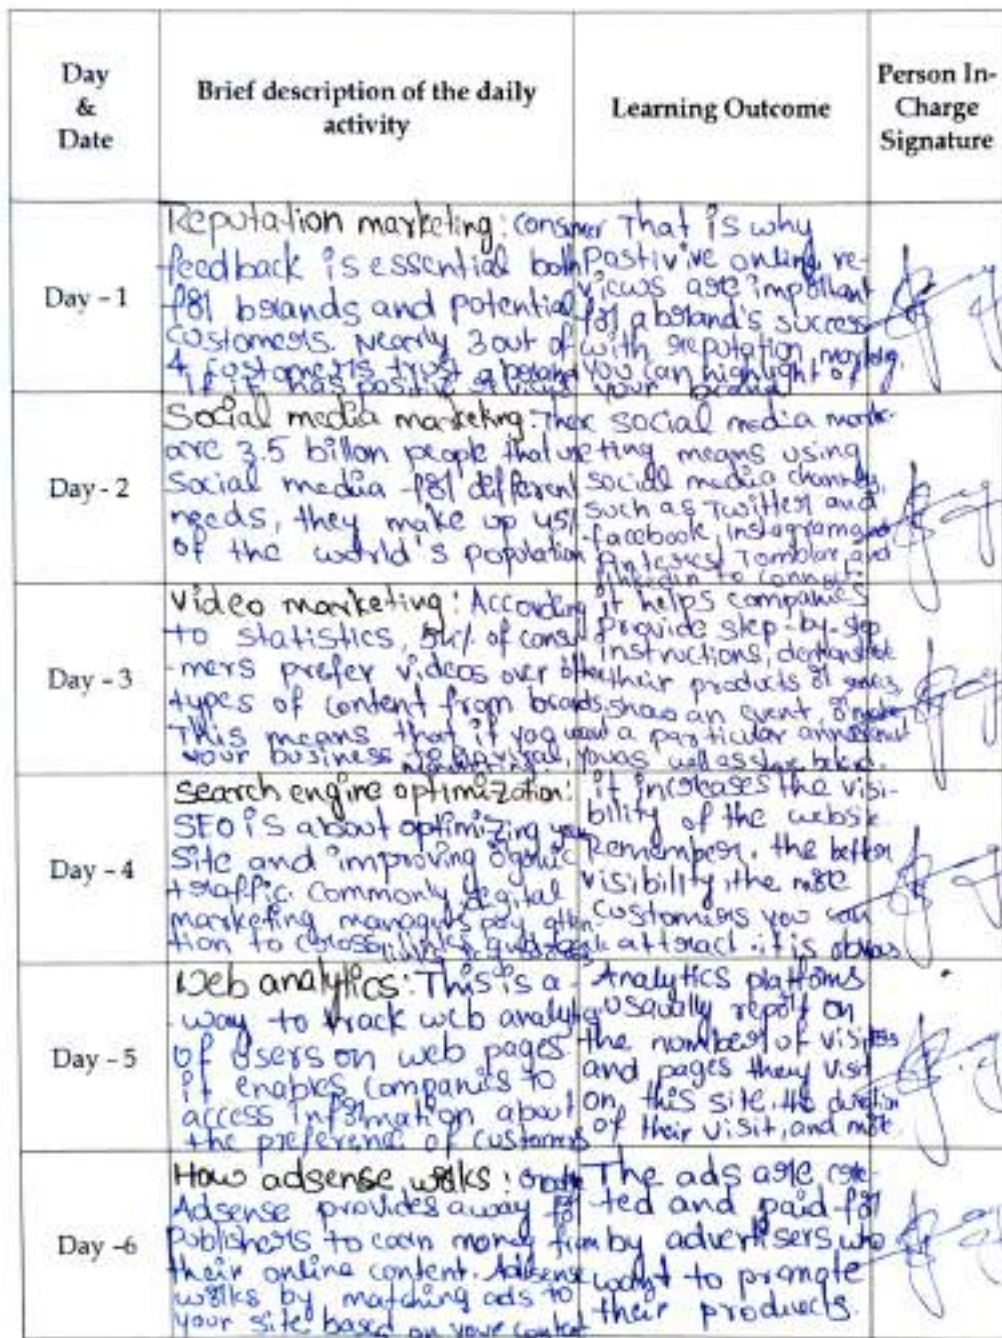 Day
&
Date
Brief description of the daily
activity
Learning Outcome
Person In-
Charge
Signature
Day - 1
Reputation marketing: Consmer
feedback is essential both
for brands and potential
customers. Nearly 3 out of
4 customers trust a brand
if it has positive
That is why
Postivive online re-
views are important
for a brand's success
with reputation
you can highlight
your brand
Day - 2
Social media marketing: There
are 3.5 billon people that use
Social media for different
needs, they make up 45%
of the world's population
social media mark-
eting means using
social media channels,
such as Twitter and
facebook, instagram
Pinterest Tomblar, and
linkedin to connect
Day - 3
Video marketing: According
to statistics, 54% of consu
-mers prefer videos over other
types of content from brands.
This means that if you want
your business
it helps companies
Provide step-by-step
instructions, demonstrate
their products or services,
show an event, or make
a particular
as well as
Day - 4
Search engine optimization:
SEO is about optimizing your
site and improving
traffic. Commonly degital
marketing managers pay atten-
tion to
it increases the visi-
bility of the website.
Remember, the better
visibility, the more
customers you can
attract. it is
Day - 5
Web analytics: This is a
way to track web analytics
of users on web pages.
it enables companies to
access information about
the preference of customers
Analytics platforms
usually report on
the number of visitors
and pages they visit
on this site, the duration
of their visit, and more.
Day -6
How adsense works:
Adsense provides a way for
Publishers to earn money from
their online content. Adsense
works by matching ads to
your site based on your content
The ads are crea-
ted and paid for
by advertisers who
want to promote
their products.